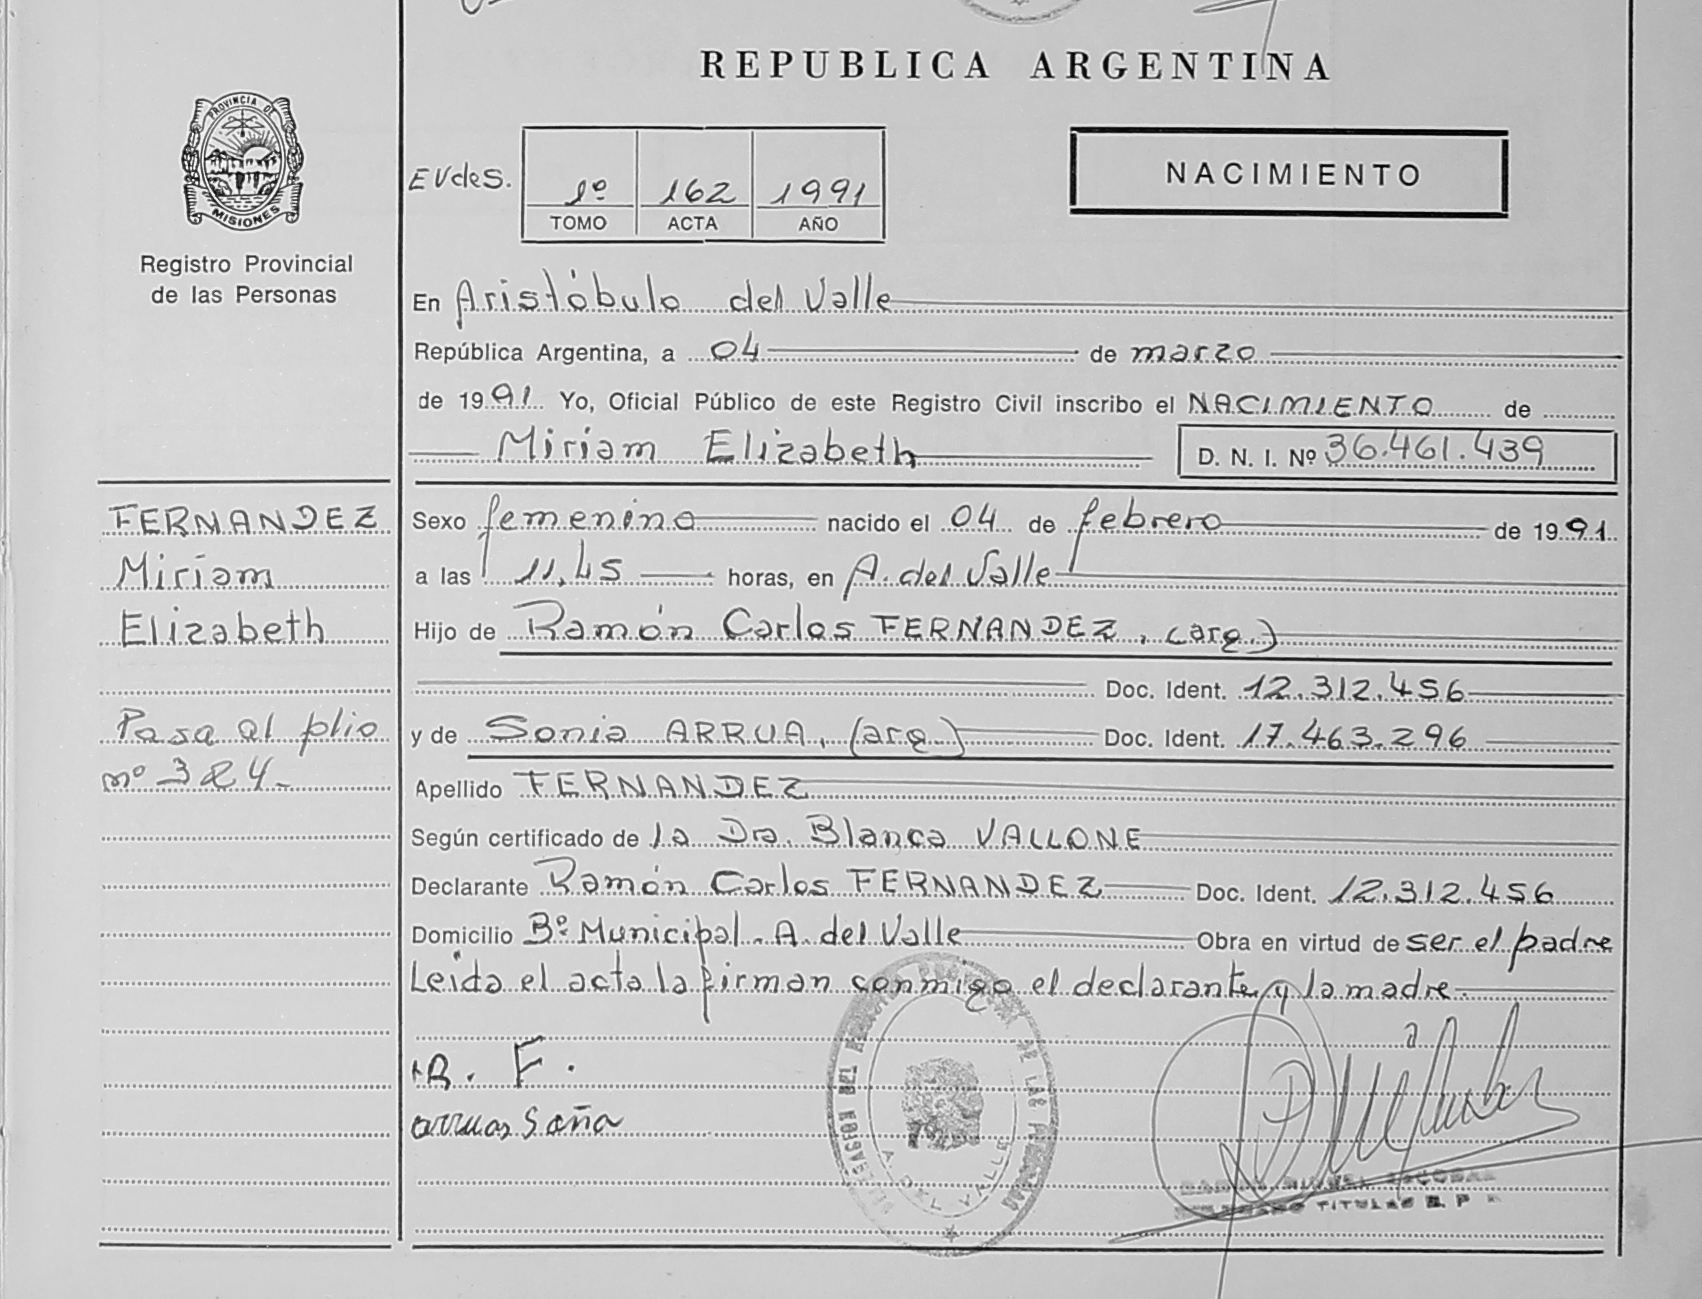 REPUBLICA ARGENTINA
PROVINCIA DE MISIONES
Registro Provincial
de las Personas
EVdes.
1º 162 1991
TOMO ACTA AÑO
NACIMIENTO
En Aristóbulo del Valle
República Argentina, a 04 de marzo
de 1991 Yo, Oficial Público de este Registro Civil inscribo el NACIMIENTO de
Miriam Elizabeth D. N. I. Nº 36.461.439
FERNANDEZ
Miriam
Elizabeth
Pasa al plio
nº 324.-
Sexo femenino nacido el 04 de febrero de 1991
a las 11,45 horas, en A. del Valle
Hijo de Ramón Carlos FERNANDEZ, (arg.)
Doc. Ident. 12.312.456
y de Sonia ARRUA, (arg.) Doc. Ident. 17.463.296
Apellido FERNANDEZ
Según certificado de la Dra. Blanca VALLONE
Declarante Ramón Carlos FERNANDEZ Doc. Ident. 12.312.456
Domicilio Bº Municipal. A. del Valle Obra en virtud de ser el padre
Leida el acta la firman conmigo el declarante y la madre.
R. F.
A. DEL VALLE
ESCOBAR
TITULAR R. P.